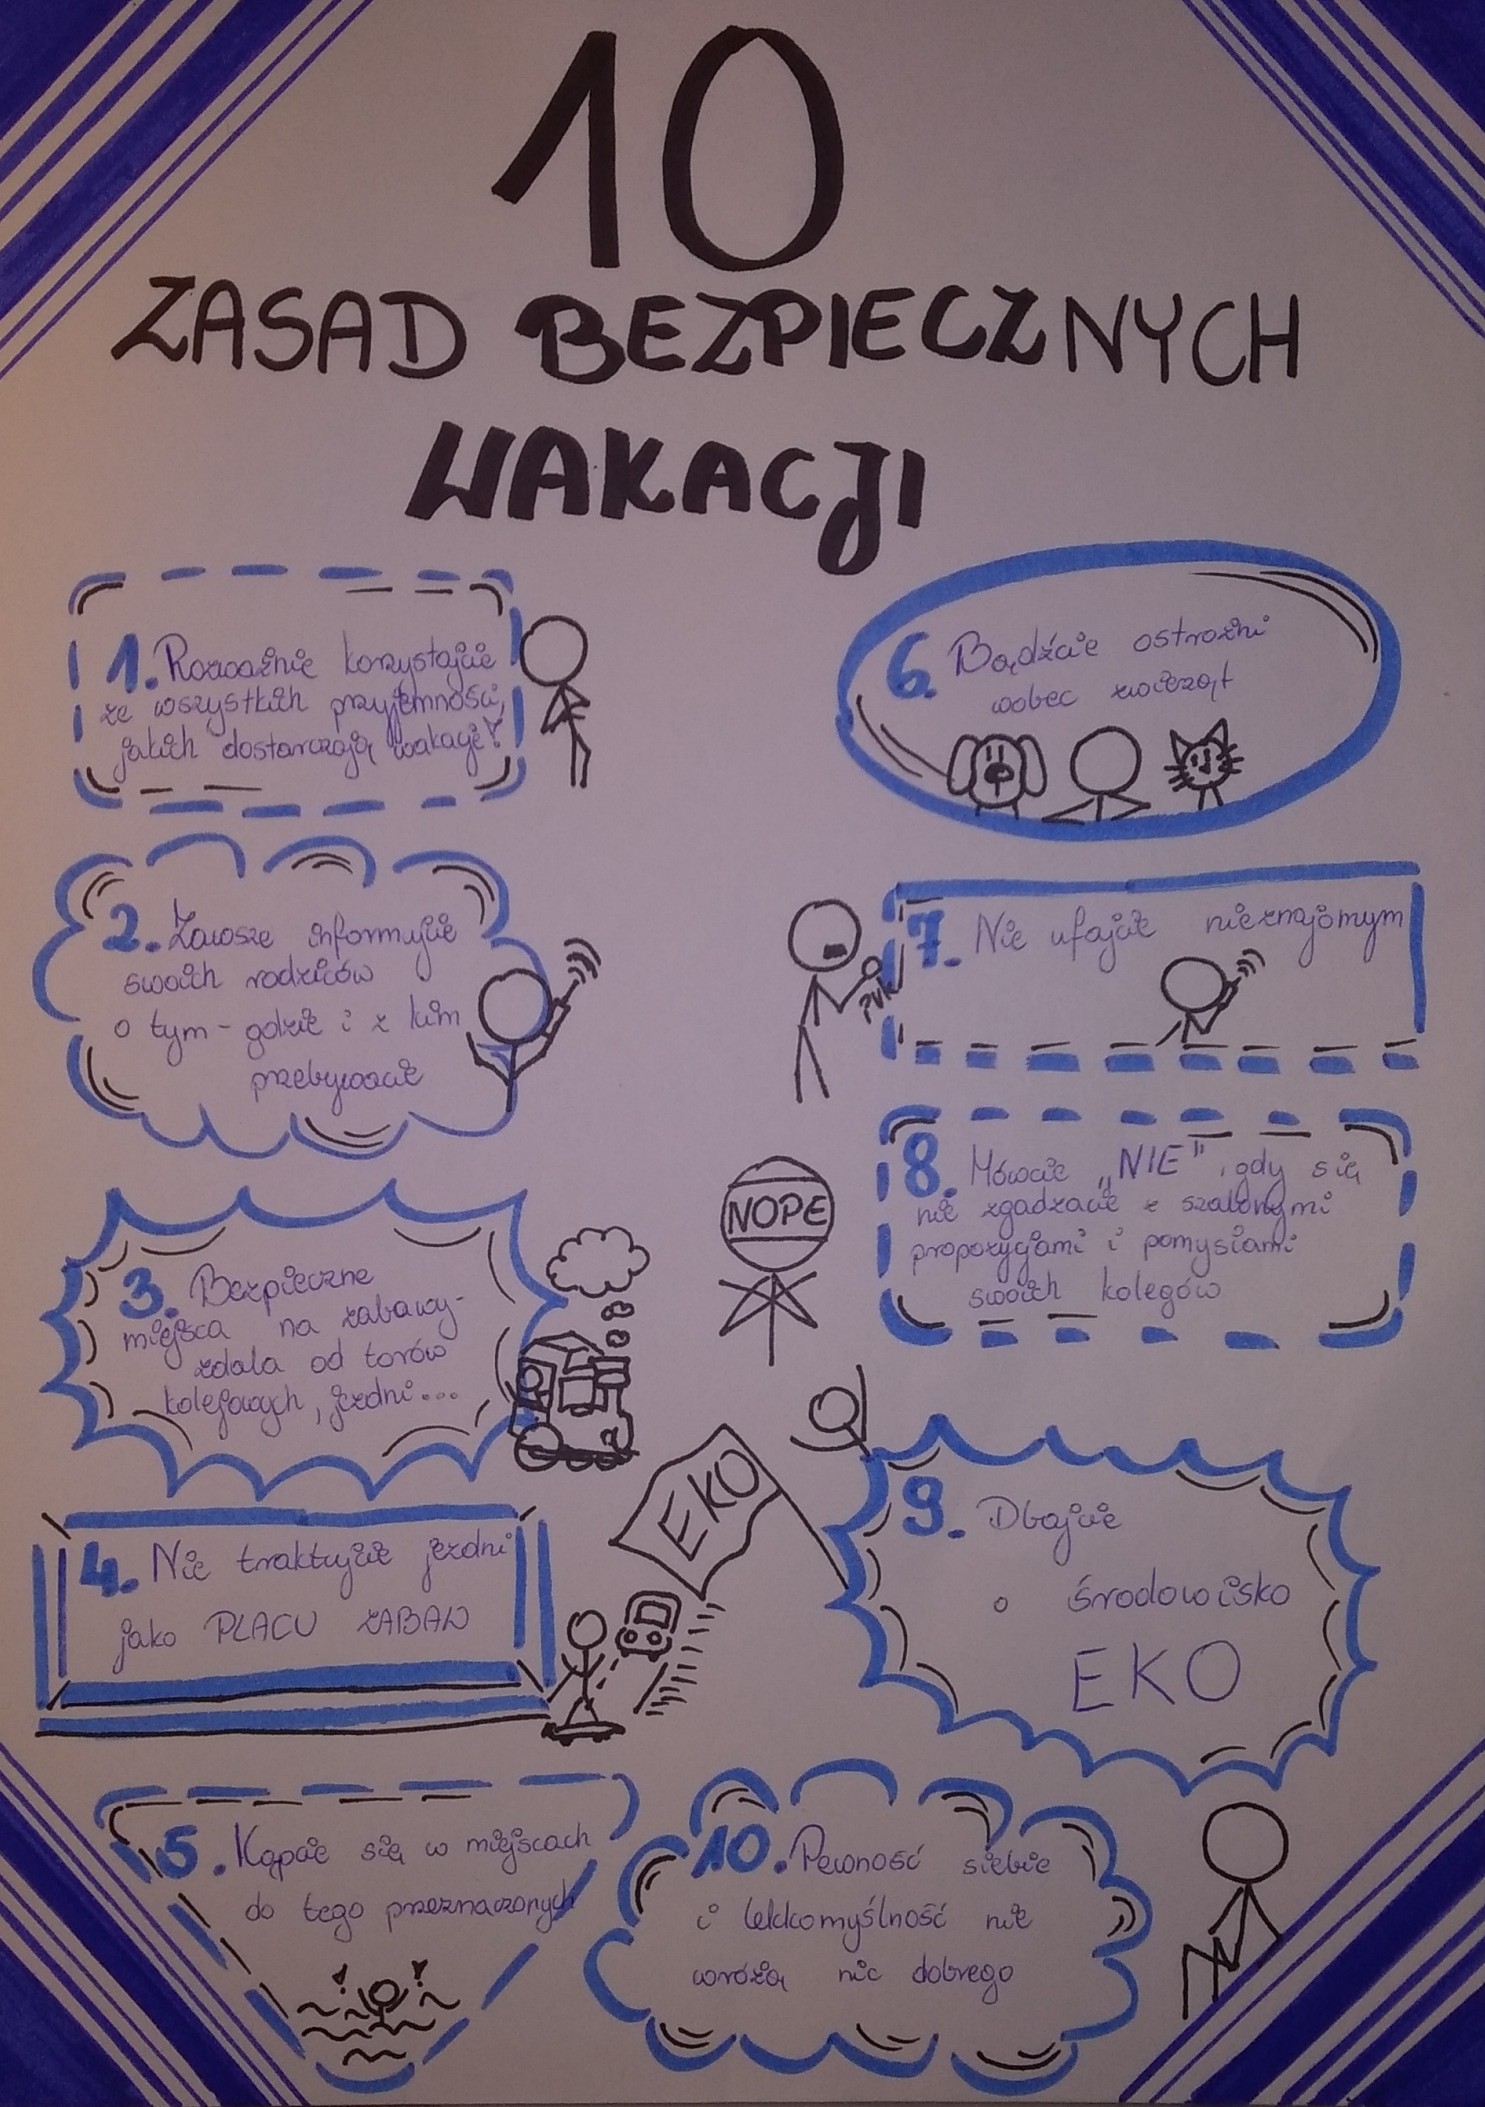 10
ZASAD BEZPIECZNYCH
WAKACJI
1. Rozważnie korzystajcie
ze wszystkich przyjemności,
jakich dostarczają wakacje!
2. Zawsze informujcie
swoich rodziców
o tym - gdzie i z kim
przebywacie
3. Bezpieczne
miejsca na zabawy-
zdala od torów
kolejowych, jezdni...
4. Nie traktujcie jezdni
jako PLACU ZABAW
5. Kąpcie się w miejscach
do tego przeznaczonych
6. Bądźcie ostrożni
wobec zwierząt
7. Nie ufajcie nieznajomym
8. Mówcie „NIE", gdy się
nie zgadzacie z szalonymi
propozycjami i pomysłami
swoich kolegów
NOPE
9. Dbajcie
o środowisko
EKO
EKO
10. Pewność siebie
i lekkomyślność nie
wróżą nic dobrego